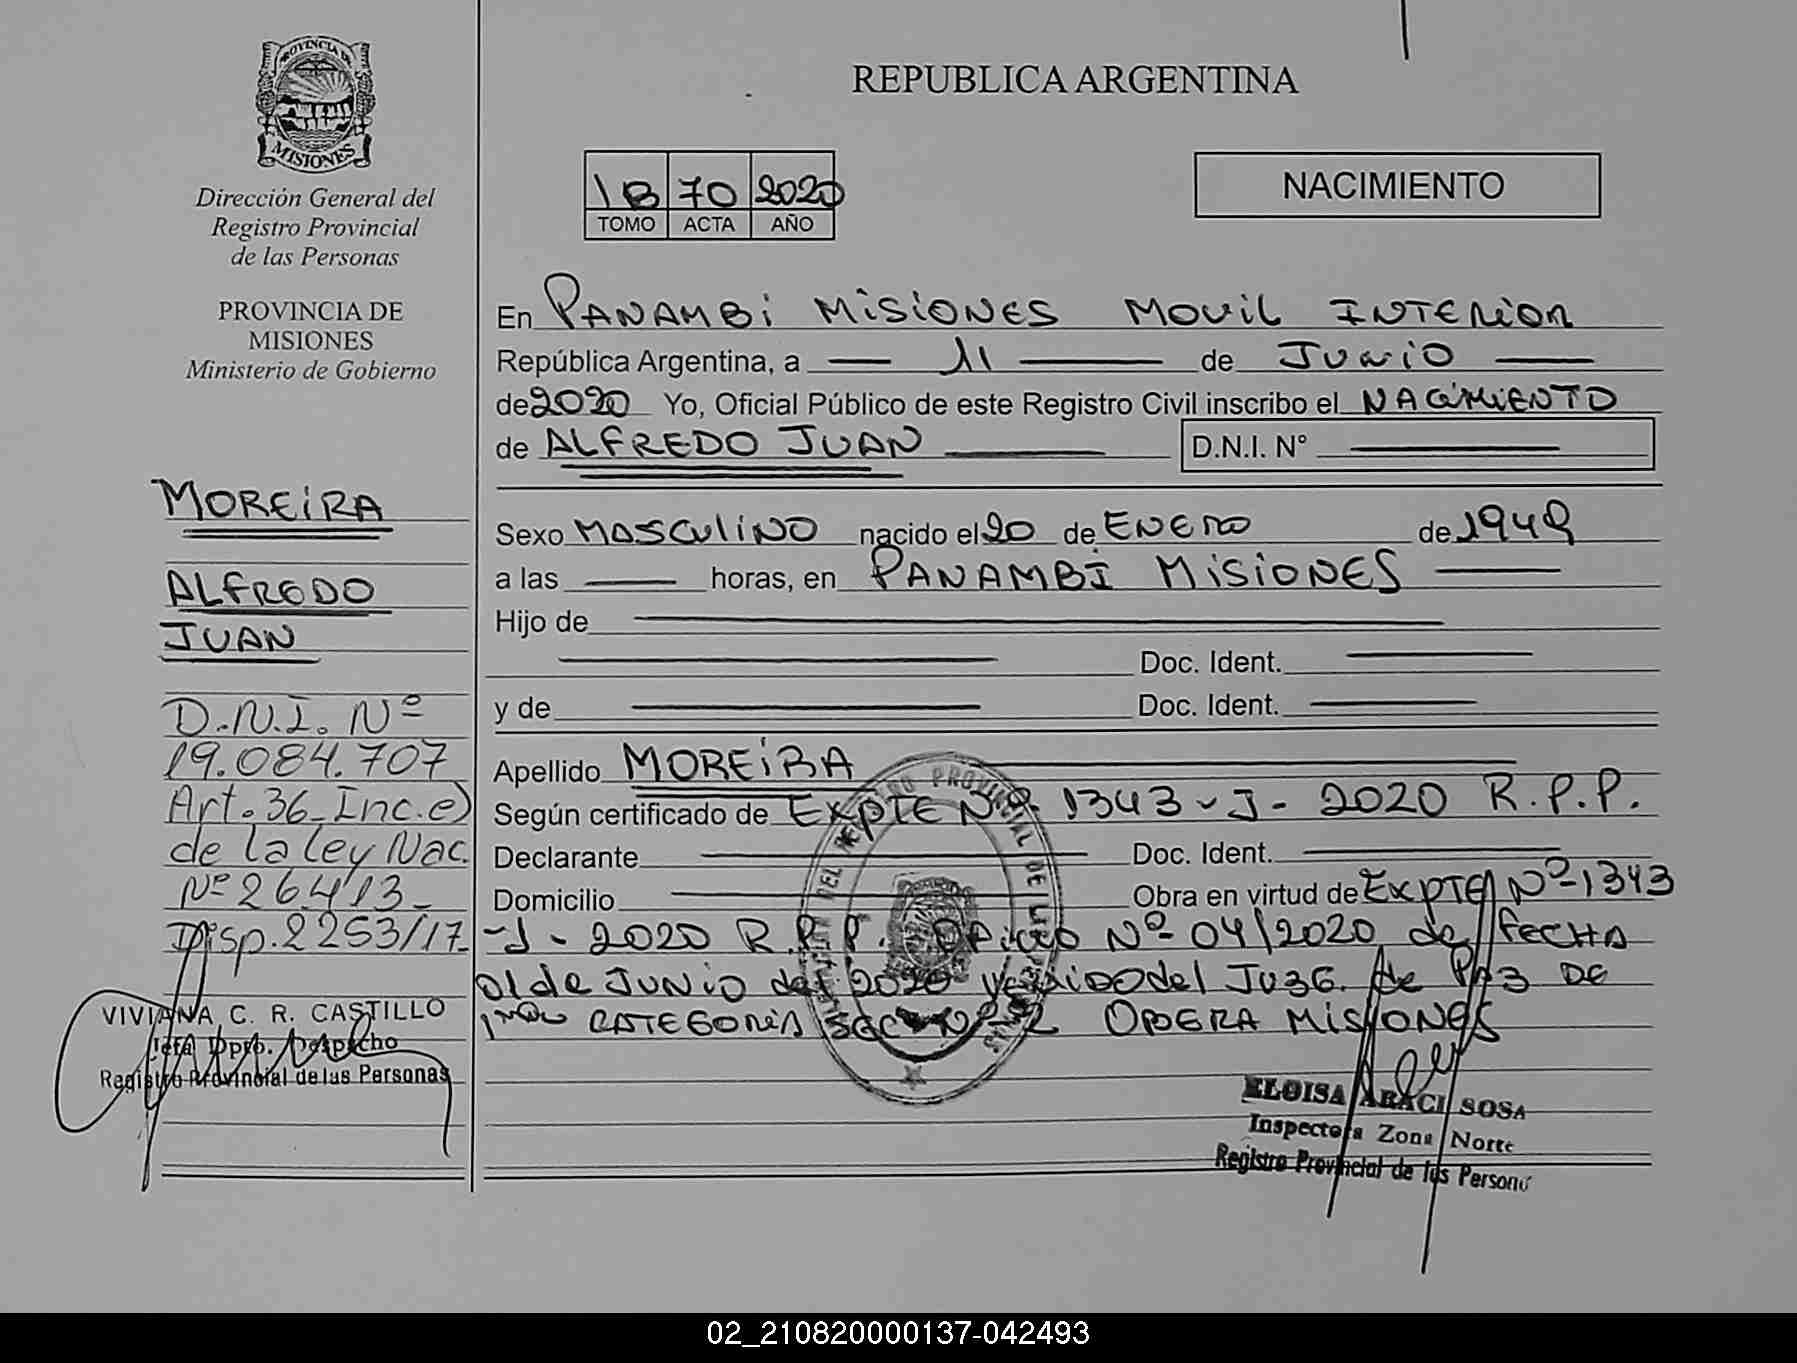 PROVINCIA DE
MISIONES
Dirección General del
Registro Provincial
de las Personas
PROVINCIA DE
MISIONES
Ministerio de Gobierno
MOREIRA
ALFREDO
JUAN
D.N.I. Nº
19.084.707
Art. 36 Inc. e)
de la ley Nac.
Nº 26.413
Disp. 2253/17
VIVIANA C. R. CASTILLO
Jefa Dpto. Despacho
Registro Provincial de las Personas
REPUBLICA ARGENTINA
1B 70 2020
TOMO ACTA AÑO
NACIMIENTO
En PANAMBI MISIONES MOVIL INTERIOR
República Argentina, a 11 de JUNIO
de 2020 Yo, Oficial Público de este Registro Civil inscribo el NACIMIENTO
de ALFREDO JUAN D.N.I. N°
Sexo MASCULINO nacido el 20 de ENERO de 1949
a las horas, en PANAMBI MISIONES
Hijo de
Doc. Ident.
y de Doc. Ident.
Apellido MOREIRA
Según certificado de EXPTE Nº 1343-J-2020 R.P.P.
Declarante Doc. Ident.
Domicilio Obra en virtud de EXPTE Nº 1343
-J-2020 R.P.P. OFICIO Nº 04/2020 de FECHA
01 de JUNIO del 2020 del JUZG. de PAZ DE
CATEGORIA SEC Nº 2 OBERA MISIONES
ELOISA ARACI SOSA
Inspectora Zona Norte
Registro Provincial de las Persona
02_210820000137-042493